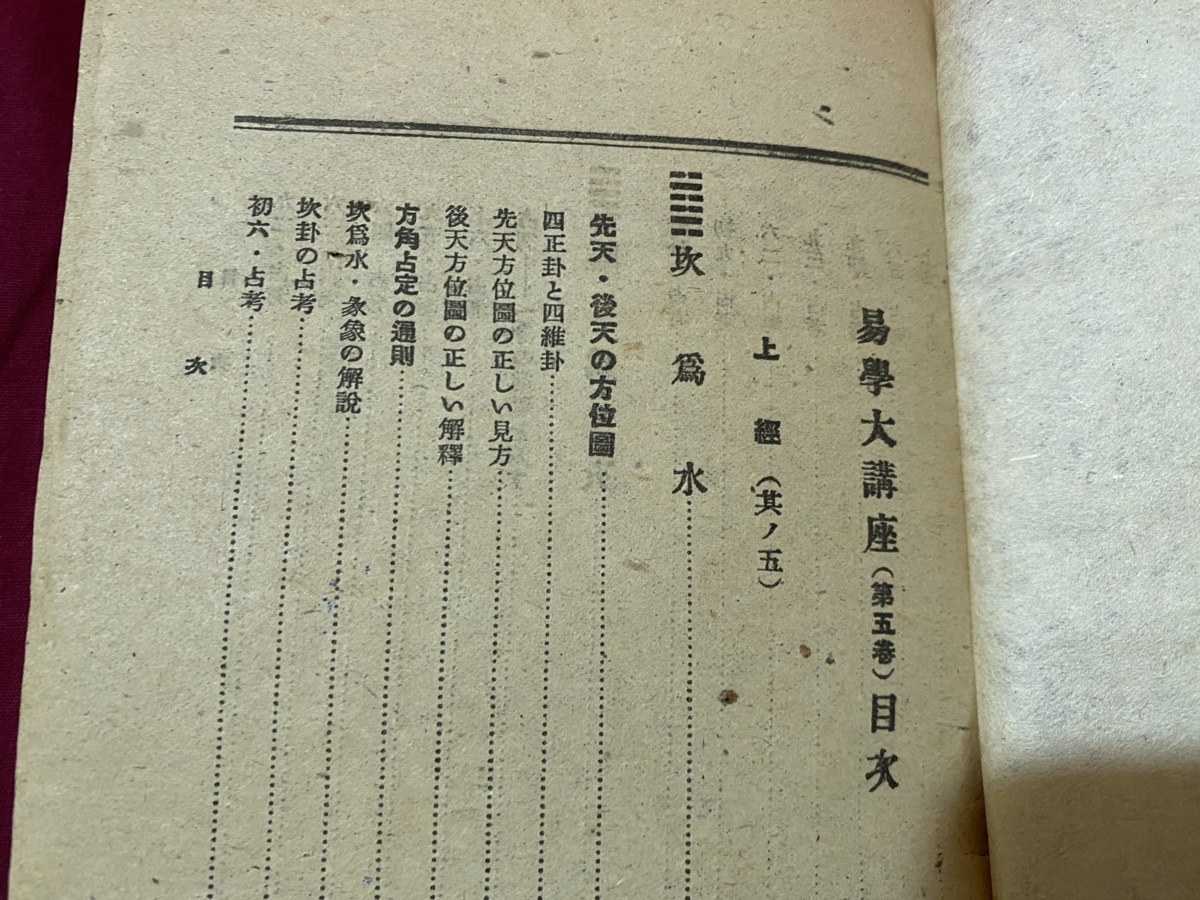 易學大講座（第五卷）目次
上經（其ノ五）
䷜坎爲水
先天・後天の方位圖
四正卦と四維卦
先天方位圖の正しい見方
後天方位圖の正しい解釋
方角占定の通則
坎爲水・彖象の解說
坎卦の占考
初六・占考
目次